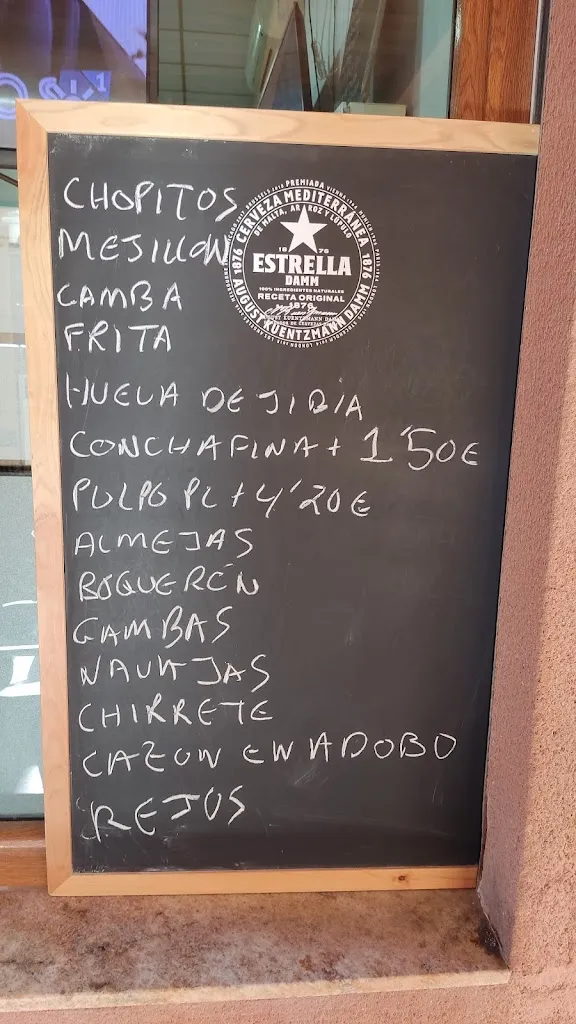 CHOPITOS
MEJILLON
GAMBA
FRITA
HUEVA DE JIBIA
CONCHAFINA + 1'50€
PULPO PL + 4'20€
ALMEJAS
BOQUERÉN
GAMBAS
NAVAJAS
CHIRRETE
CAZON EN ADOBO
REJOS
PREMIADA
CERVEZA MEDITERRÁNEA
DE MALTA, ARROZ Y LÚPULO
1876
1876
18 76
ESTRELLA
DAMM
100% INGREDIENTES NATURALES
RECETA ORIGINAL
1876
AUGUST KUENTZMANN DAMM